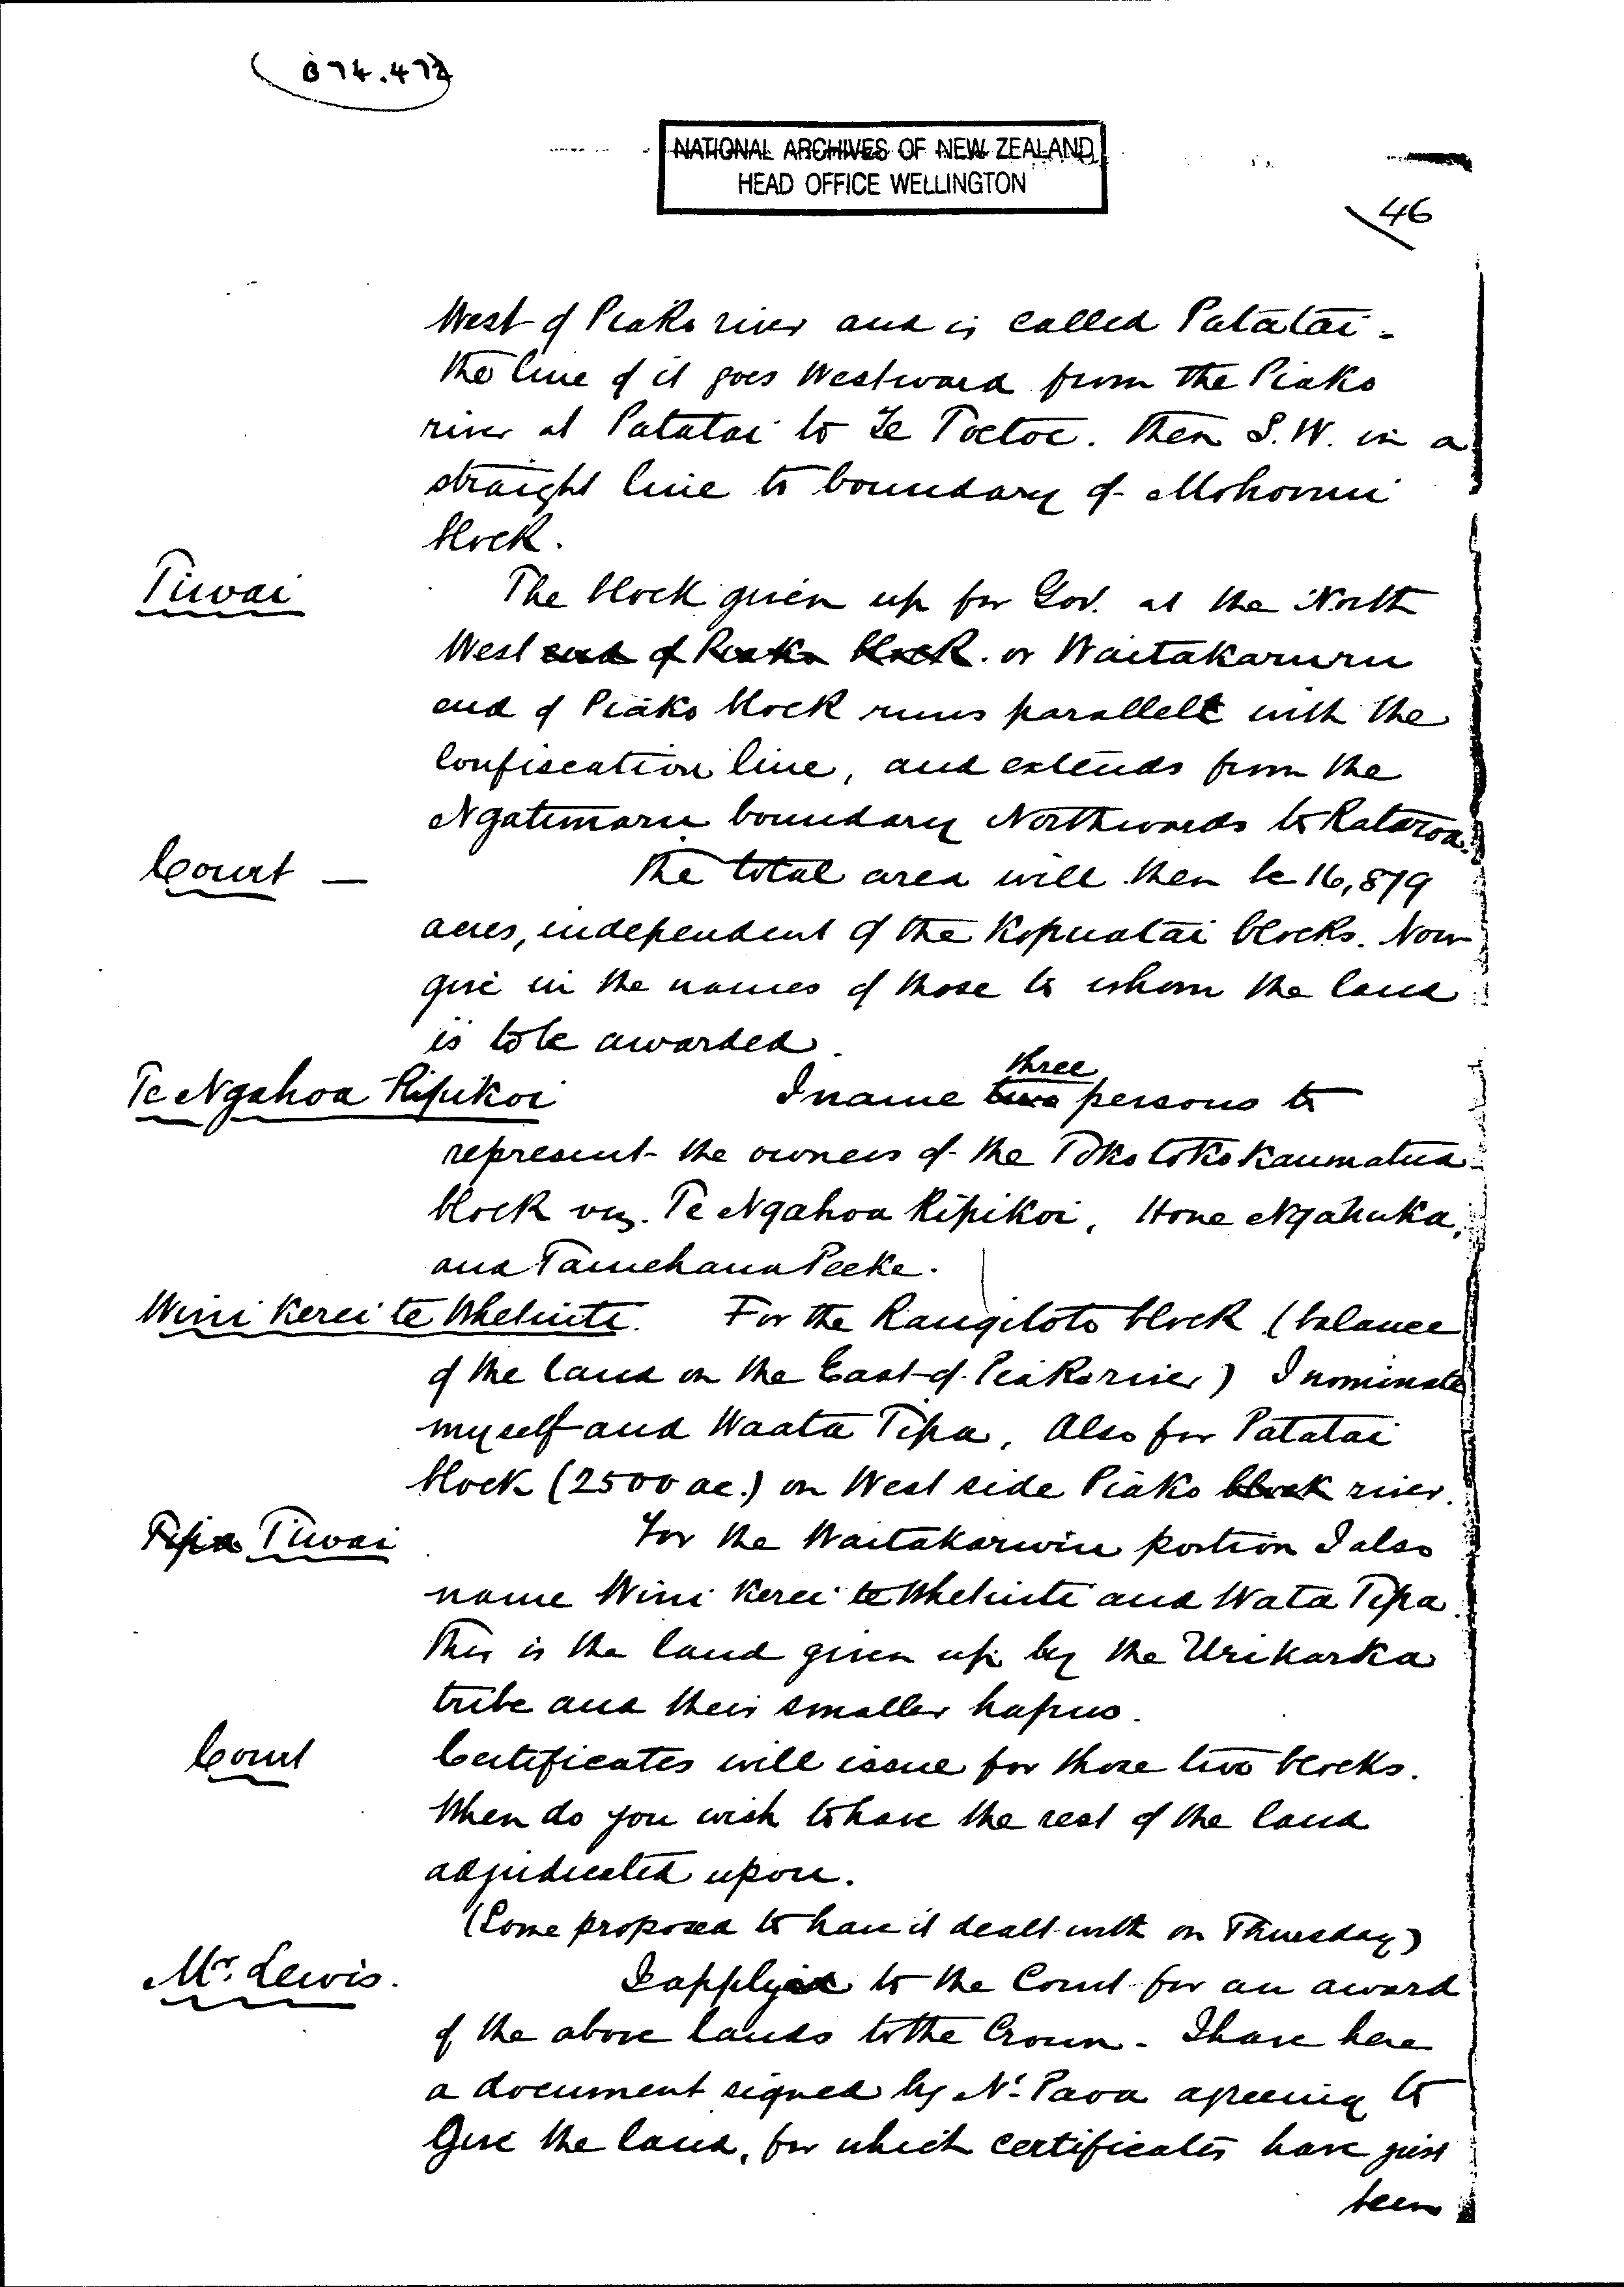 B74.472
NATIONAL ARCHIVES OF NEW ZEALAND
HEAD OFFICE WELLINGTON
46
West of Piako river and is called Patatai -
the line of it goes Westward from the Piako
river at Patatai to Te Toetoe. then S.W. in a
straight line to boundary of Mohonui
block.
Tiwai The block given up for Gov. at the North
West end of Piako block. or Waitakaruru
end of Piako block runs parallel with the
Confiscation line, and extends from the
Ngatimaru boundary Northwards to Rataroa.
Court — The total area will then be 16,879
acres, independent of the Kopuatai blocks. Now
give in the names of those to whom the land
is to be awarded.
three
Te Ngahoa Ripikoi I name two persons to
represent the owners of the Tokotoko Kaumatua
block viz. Te Ngahoa Ripikoi, Hone Ngahuka,
and Tamehana Peeke.
Wini Kerei te Whetuiti. For the Rangitoto block (balance
of the land on the East of Piako river) I nominate
myself and Waata Tipa, Also for Patatai
block (2500 ac.) on West side Piako block river.
Tipa Tiwai For the Waitakaruru portion I also
name Wini Kerei te Whetuiti and Wata Tipa.
This is the land given up by the Urikaraka
tribe and their smaller hapus.
Court Certificates will issue for those two blocks.
When do you wish to have the rest of the land
adjudicated upon.
(Some proposed to have it dealt with on Thursday)
Mr. Lewis. I apply to the Court for an award
of the above lands to the Crown - I have here
a document signed by N. Paoa agreeing to
Give the land, for which certificates have just
been